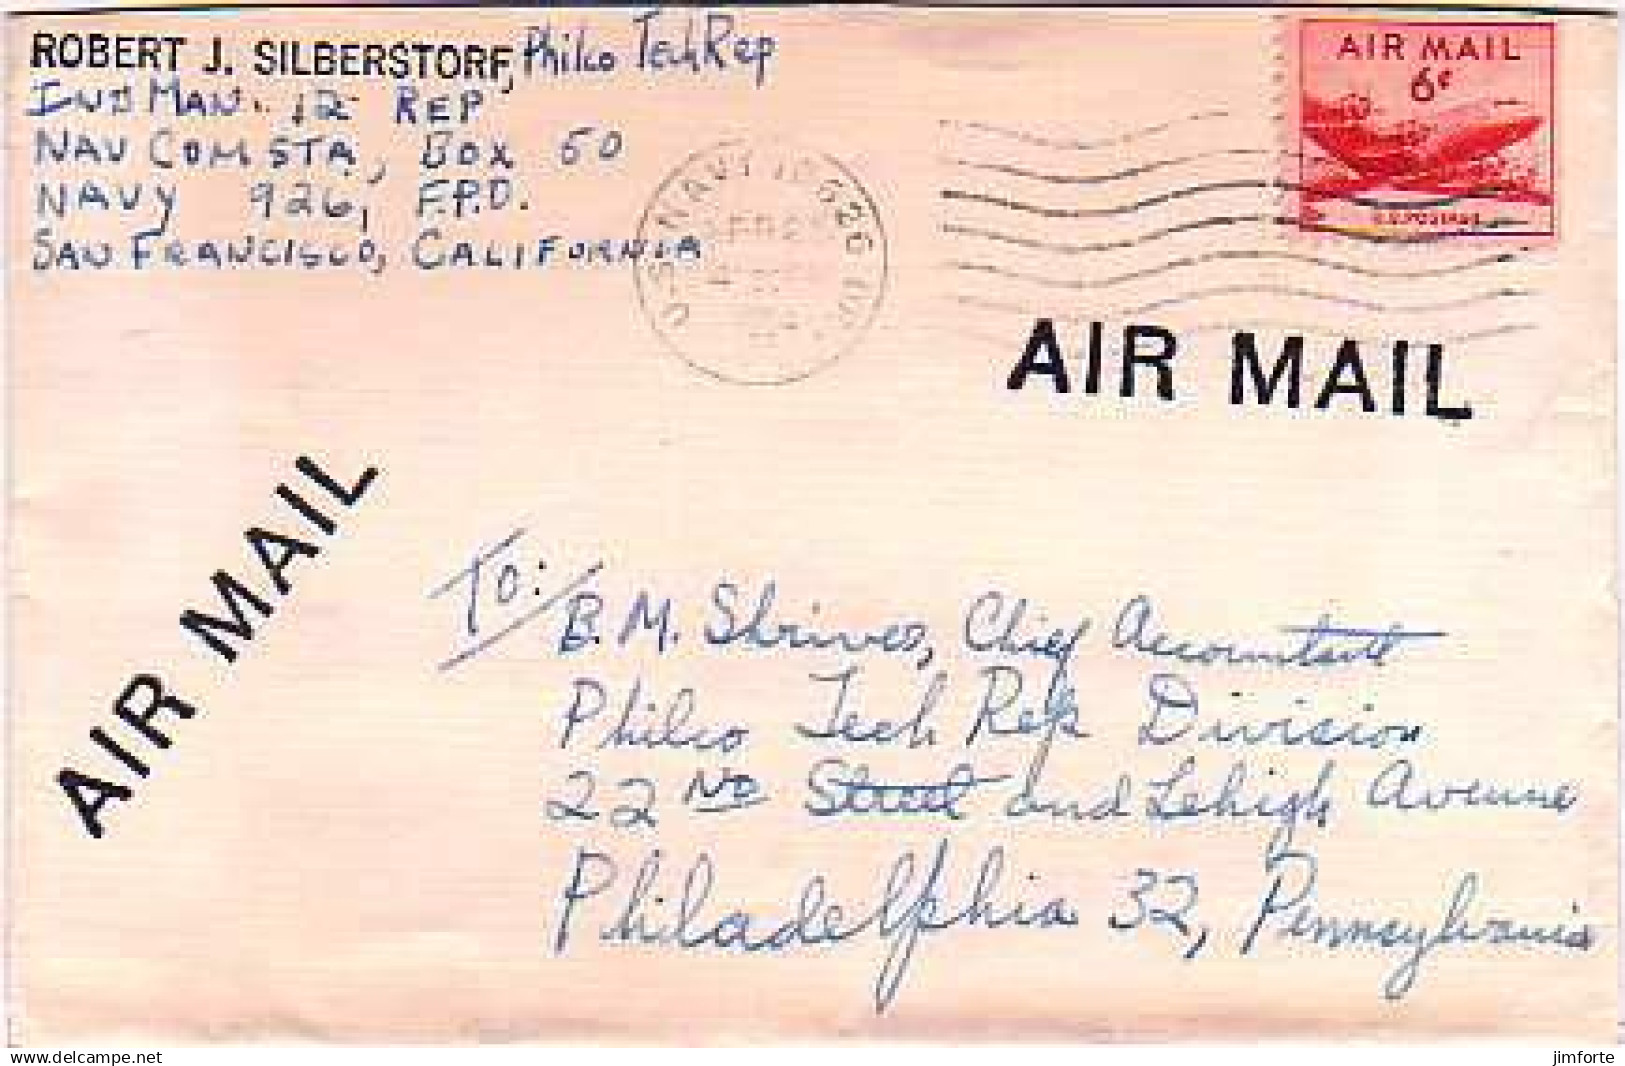 ROBERT J. SILBERSTORF, Philco TechRep
IND MAN. 12 REP
NAV COM STA, BOX 50
NAVY 926, F.P.O.
SAN FRANCISCO, CALIFORNIA
U.S. NAVY 10626
AIR MAIL
6¢
U.S. POSTAGE
AIR MAIL
AIR MAIL
To:
B.M. Shrives, Chief Accountant
Philco Tech Rep Division
22 ND Street and Lehigh Avenue
Philadelphia 32, Pennsylvania
www.delcampe.net
jimforte